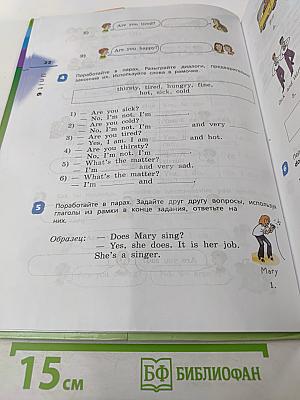 8)
Are you tired?
9)
Are you happy?
22
Unit 6
4 Поработайте в парах. Разыграйте диалоги, предварительно
закончив их. Используйте слова в рамочке.
thirsty, tired, hungry, fine,
hot, sick, cold
1) — Are you sick?
— No, I'm not. I'm
2) — Are you cold?
— No, I'm not. I'm and very
3) — Are you tired?
— Yes, I am. I am and hot.
4) — Are you thirsty?
— No, I'm not. I'm
5) — What's the matter?
— I'm and very sad.
6) — What's the matter?
— I'm and
5 Поработайте в парах. Задайте друг другу вопросы, используя
глаголы из рамки в конце задания, ответьте на
них.
Образец: — Does Mary sing?
— Yes, she does. It is her job.
She's a singer.
Mary
1.
15 см
БФ БИБЛИОФАН